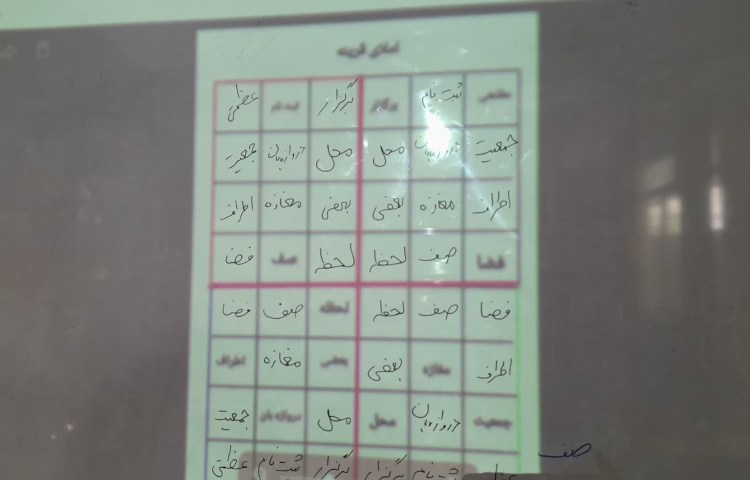 املای قرینه
عظمتی ثبت نام برگزار برگزار ثبت نام عظمتی
جمعیت دروازه‌بان محل محل دروازه‌بان جمعیت
اطراف مغازه بعضی بعضی مغازه اطراف
فضا صف لحظه لحظه صف فضا
فضا صف لحظه لحظه صف فضا
اطراف مغازه بعضی بعضی مغازه اطراف
جمعیت دروازه‌بان محل محل دروازه بان جمعیت
ثبت نام برگزار برگزار ثبت نام عظمتی
صف